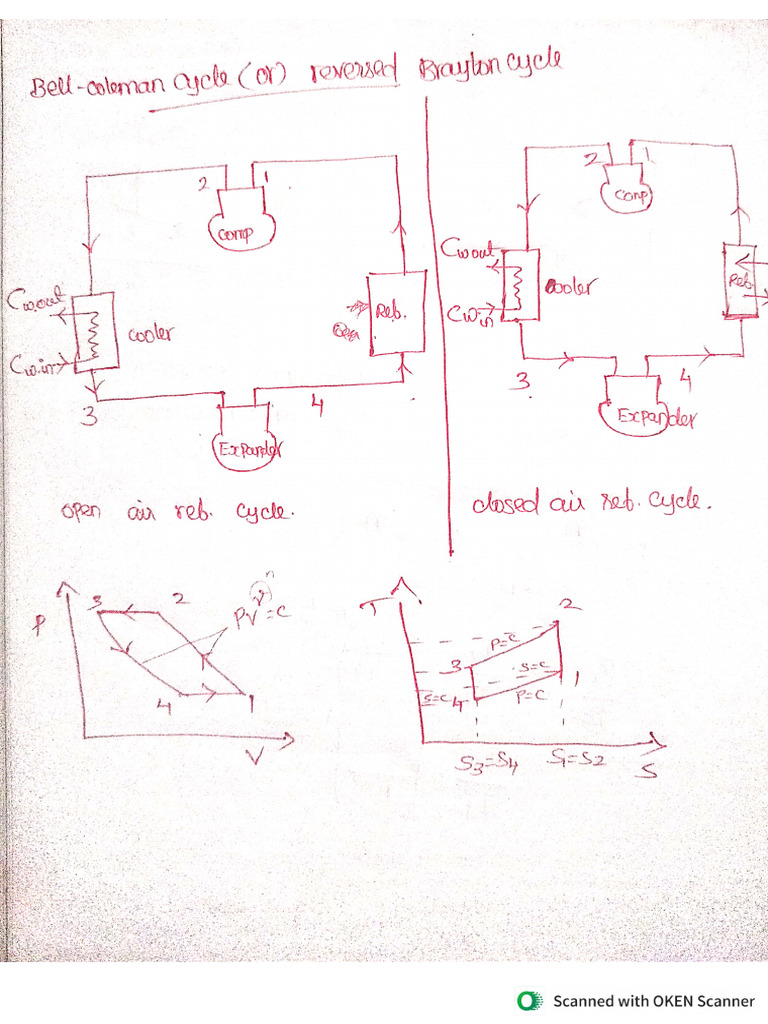 Bell-coleman cycle (or) reversed Brayton cycle
2 1
comp
Cw.out
cooler
Cw.in
Reb.
3 4
Expander
open air reb. cycle.
2 1
comp
Cw out
cooler
Cw.in
Reb.
3 4
Expander
closed air reb. cycle.
P
3 2
PVⁿ=C
4 1
V
T
2
P=C
3
S=C
1
S=C 4 P=C
S3=S4 S1=S2
S
Scanned with OKEN Scanner